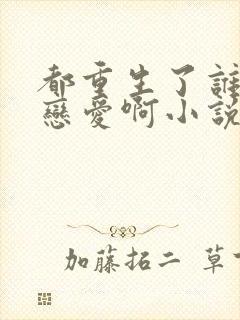 都重生了誰
戀愛啊小説
加藤拓二 草